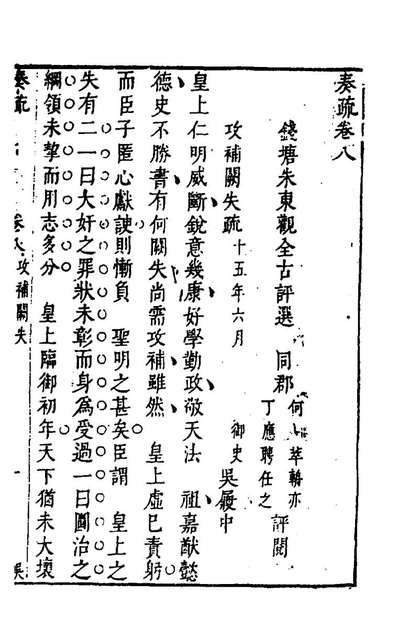 奏疏卷八
錢塘朱東觀全古評選 同郡 何 萃輈亦 丁應聘任之 評閱
攻補闕失疏 十五年六月 御史 吳履中
皇上仁明威斷銳意幾康好學勤政敬天法 祖嘉猷懿
德史不勝書有何闕失尚需攻補雖然 皇上虛已責躬
而臣子匿心獻諛則慚負 聖明之甚矣臣謂 皇上之
失有二一曰大奸之罪狀未彰而身為受過一曰圖治之
綱領未挈而用志多分 皇上臨御初年天下猶未大壞
奏疏 卷八 攻補闕失 一